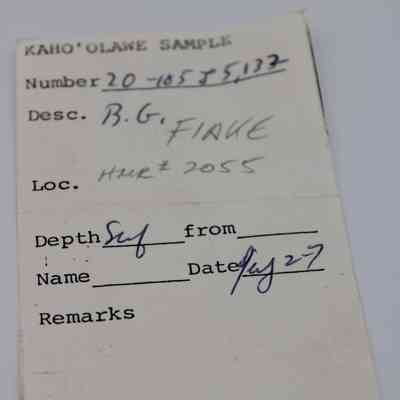 KAHO'OLAWE SAMPLE
Number 20-105 & 5,137
Desc. B.G.
FlAKE
Loc. HHR# 2055
Depth Surf from
Name Date Aug 27
Remarks